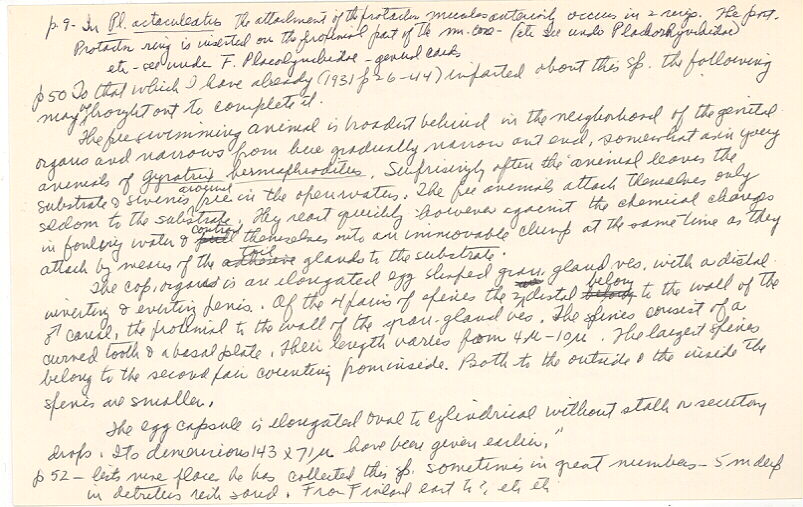 p. 9 - In Pl. octaculeatus the attachment of the protractor muscles anteriorly occurs in 2 rings. The post.
Protractor ring is inserted on the proximal part of the m. cone - (etc see under Placorhynchidae)
etc - see under F. Placorhynchidae - general cards
p 50 To that which I have already (1931 p 26-44) imparted about this sp. the following
may brought out to complete it.
The free swimming animal is broadest behind in the neighborhood of the genital
organs and narrows from here gradually narrow ant end, somewhat as in young
animals of Gyratrix hermaphroditus. Surprisingly often the animal leaves the
substrate & swims around free in the open water. The free animals attach themselves only
seldom to the substrate. They react quickly however against the chemical changes
in fouling water & pull contract themselves into an immovable clump at the same time as they
attach by means of the adhesive tail glands to the substrate.
The cop. organ is an elongated egg shaped gran. gland ves. with a distal
inverting & everting penis. Of the 4 pairs of spines the 2 distal belong belong to the wall of the
♂ canal, the proximal to the wall of the gran. gland ves. The spines consist of a
curved tooth & a basal plate. Their length varies from 4µ-10µ. The largest spines
belong to the second pair counting from inside. Both to the outside & the inside the
spines are smaller.
The egg capsule is elongated oval to cylindrical without stalk or secretory
drops. Its dimensions 143 x 71µ have been given earlier."
p 52 - lists nine places he has collected this sp. sometimes in great numbers - 5 m deep
in detritus rich sand. From Finland east to ?, etc etc